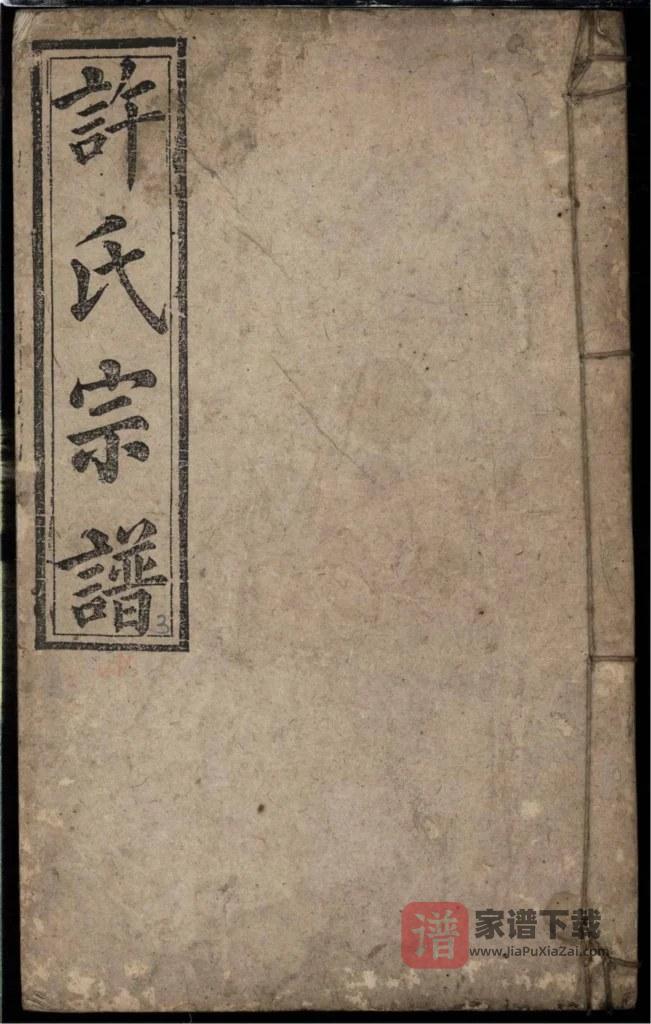 許氏宗譜
3
谱
家谱下载
www.JiaPuXiaZai.com